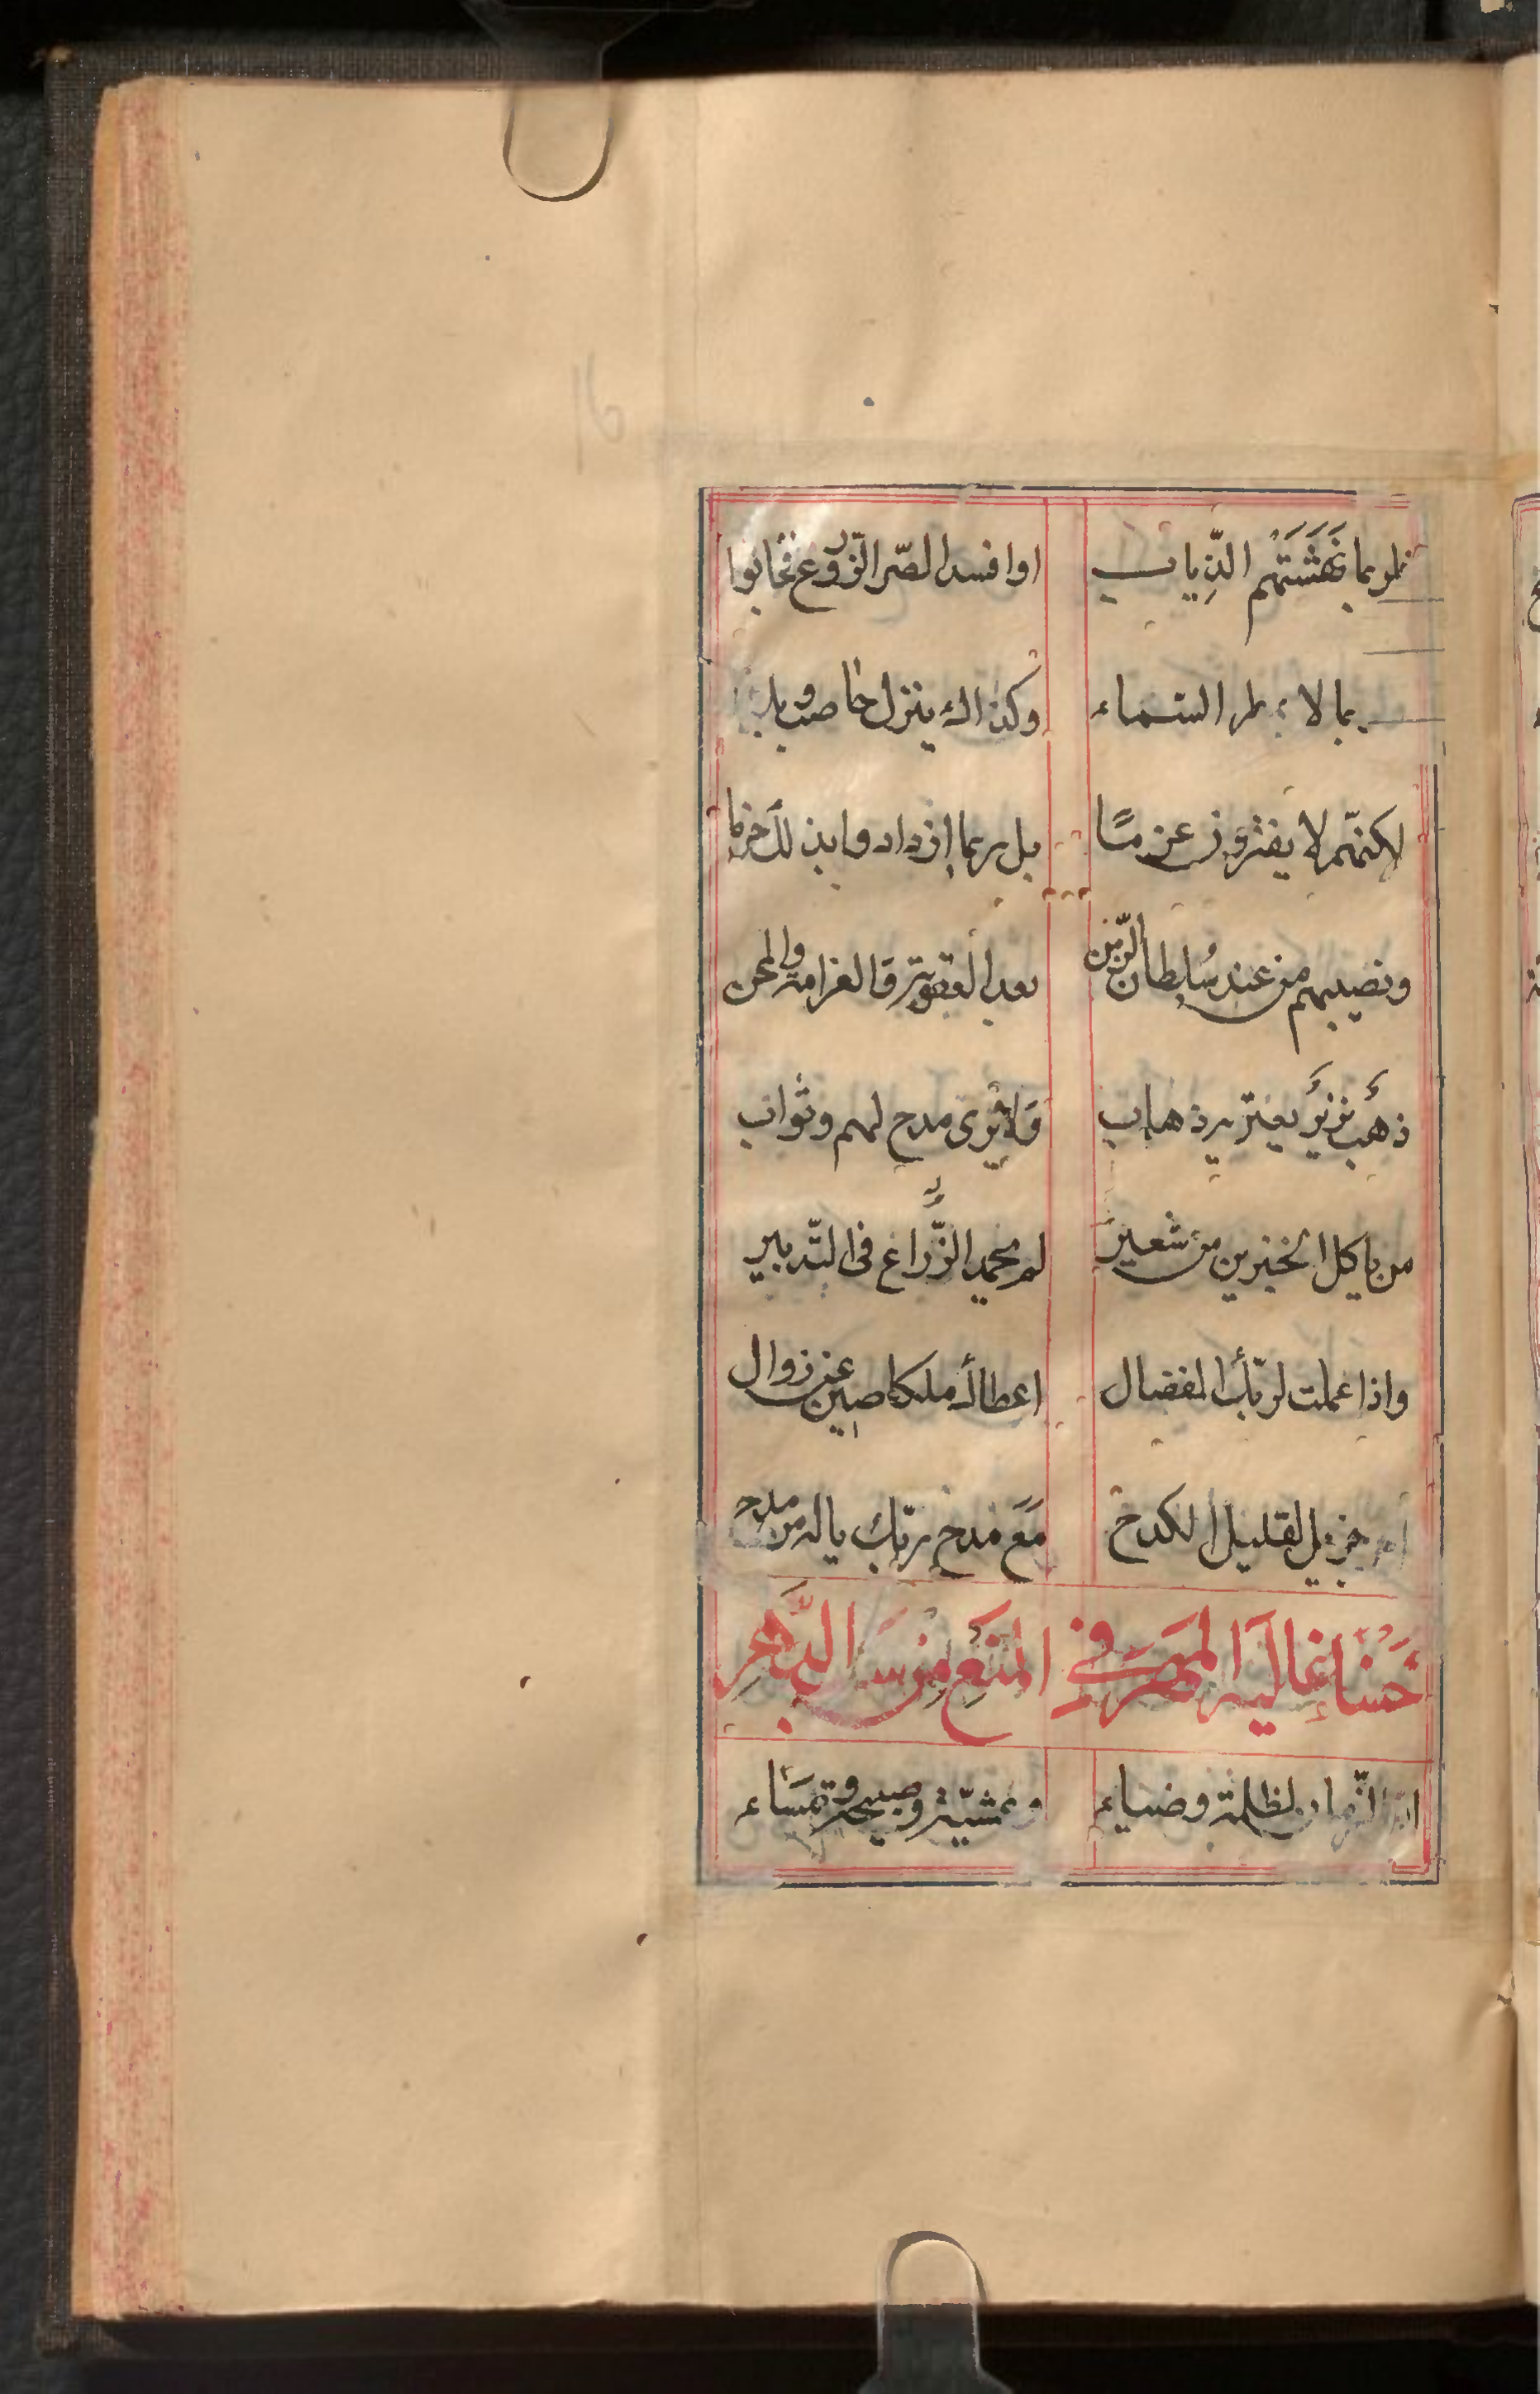 16
فلربما نَهَشَتهُم الذِّياب اوافسد الصّر الزّروع فخابوا
بما لا السماء وكذاك ينزل حاصب
لكنّهم لا يفترون عن بل ربما ازدادوا بذلك
ونصيبهم من عند سُلطان الزّمن بعد العقوبة والغرامة والمحن
ذهَب نزر يعتريه ذهاب وَلا يُرى مدح لهم وثواب
من ياكل الخبزين من شعير لم يحمد الزّراع فى التّدبير
واذا عملت لربّك المفضال اعطاك ملكا صين عن زوال
جزيل لقليل الكدح مَعَ مدح ربّك ياله من مدح
حَسْناء غالية المهر فى المنَع من سَبّ الدَّهر
انّ النّهار لظلمة وضياء وعشيّة وصبيحة ومَسَاء